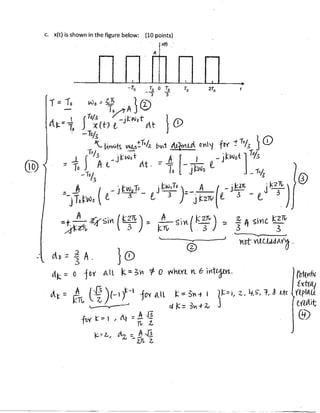 c. x(t) is shown in the figure below: (10 points)
x(t)
A
-T₀ -T₀/3 0 T₀/3 T₀ 2T₀ t
T = T₀ ω₀ = 2π/T₀ } ②
dₖ = 1/T₀ ∫ x(t) e^{-jkω₀t} dt } ①
limits was ±T₀/2 but defined only for ± T₀/3 } ①
⑩
= 1/T₀ ∫_{-T₀/3}^{T₀/3} A e^{-jkω₀t} dt. = A/T₀ [ -1/jkω₀ e^{-jkω₀t} ]
③
= -A/jT₀kω₀ ( e^{-jkω₀T₀/3} - e^{jkω₀T₀/3} ) = -A/jk2π ( e^{-jk2π/3} - e^{jk2π/3} )
= + A/k2π 2j sin(k2π/3) = A/kπ sin(k2π/3) = 2/3 A sinc k2π/3
② not necessary.
d₀ = 2/3 A. } ①
dₖ = 0 for all k = 3n ≠ 0 where n ∈ integers.
dₖ = A/kπ (√3/2) (-1)^{k-1} for all k = 3n + 1 } k = 1, 2, 4, 5, 7, 8 etc
& k = 3n + 2
Extra/
replace
credit
④
for k = 1, d₁ = A/π √3/2
k = 2, d₂ = -A/2π √3/2